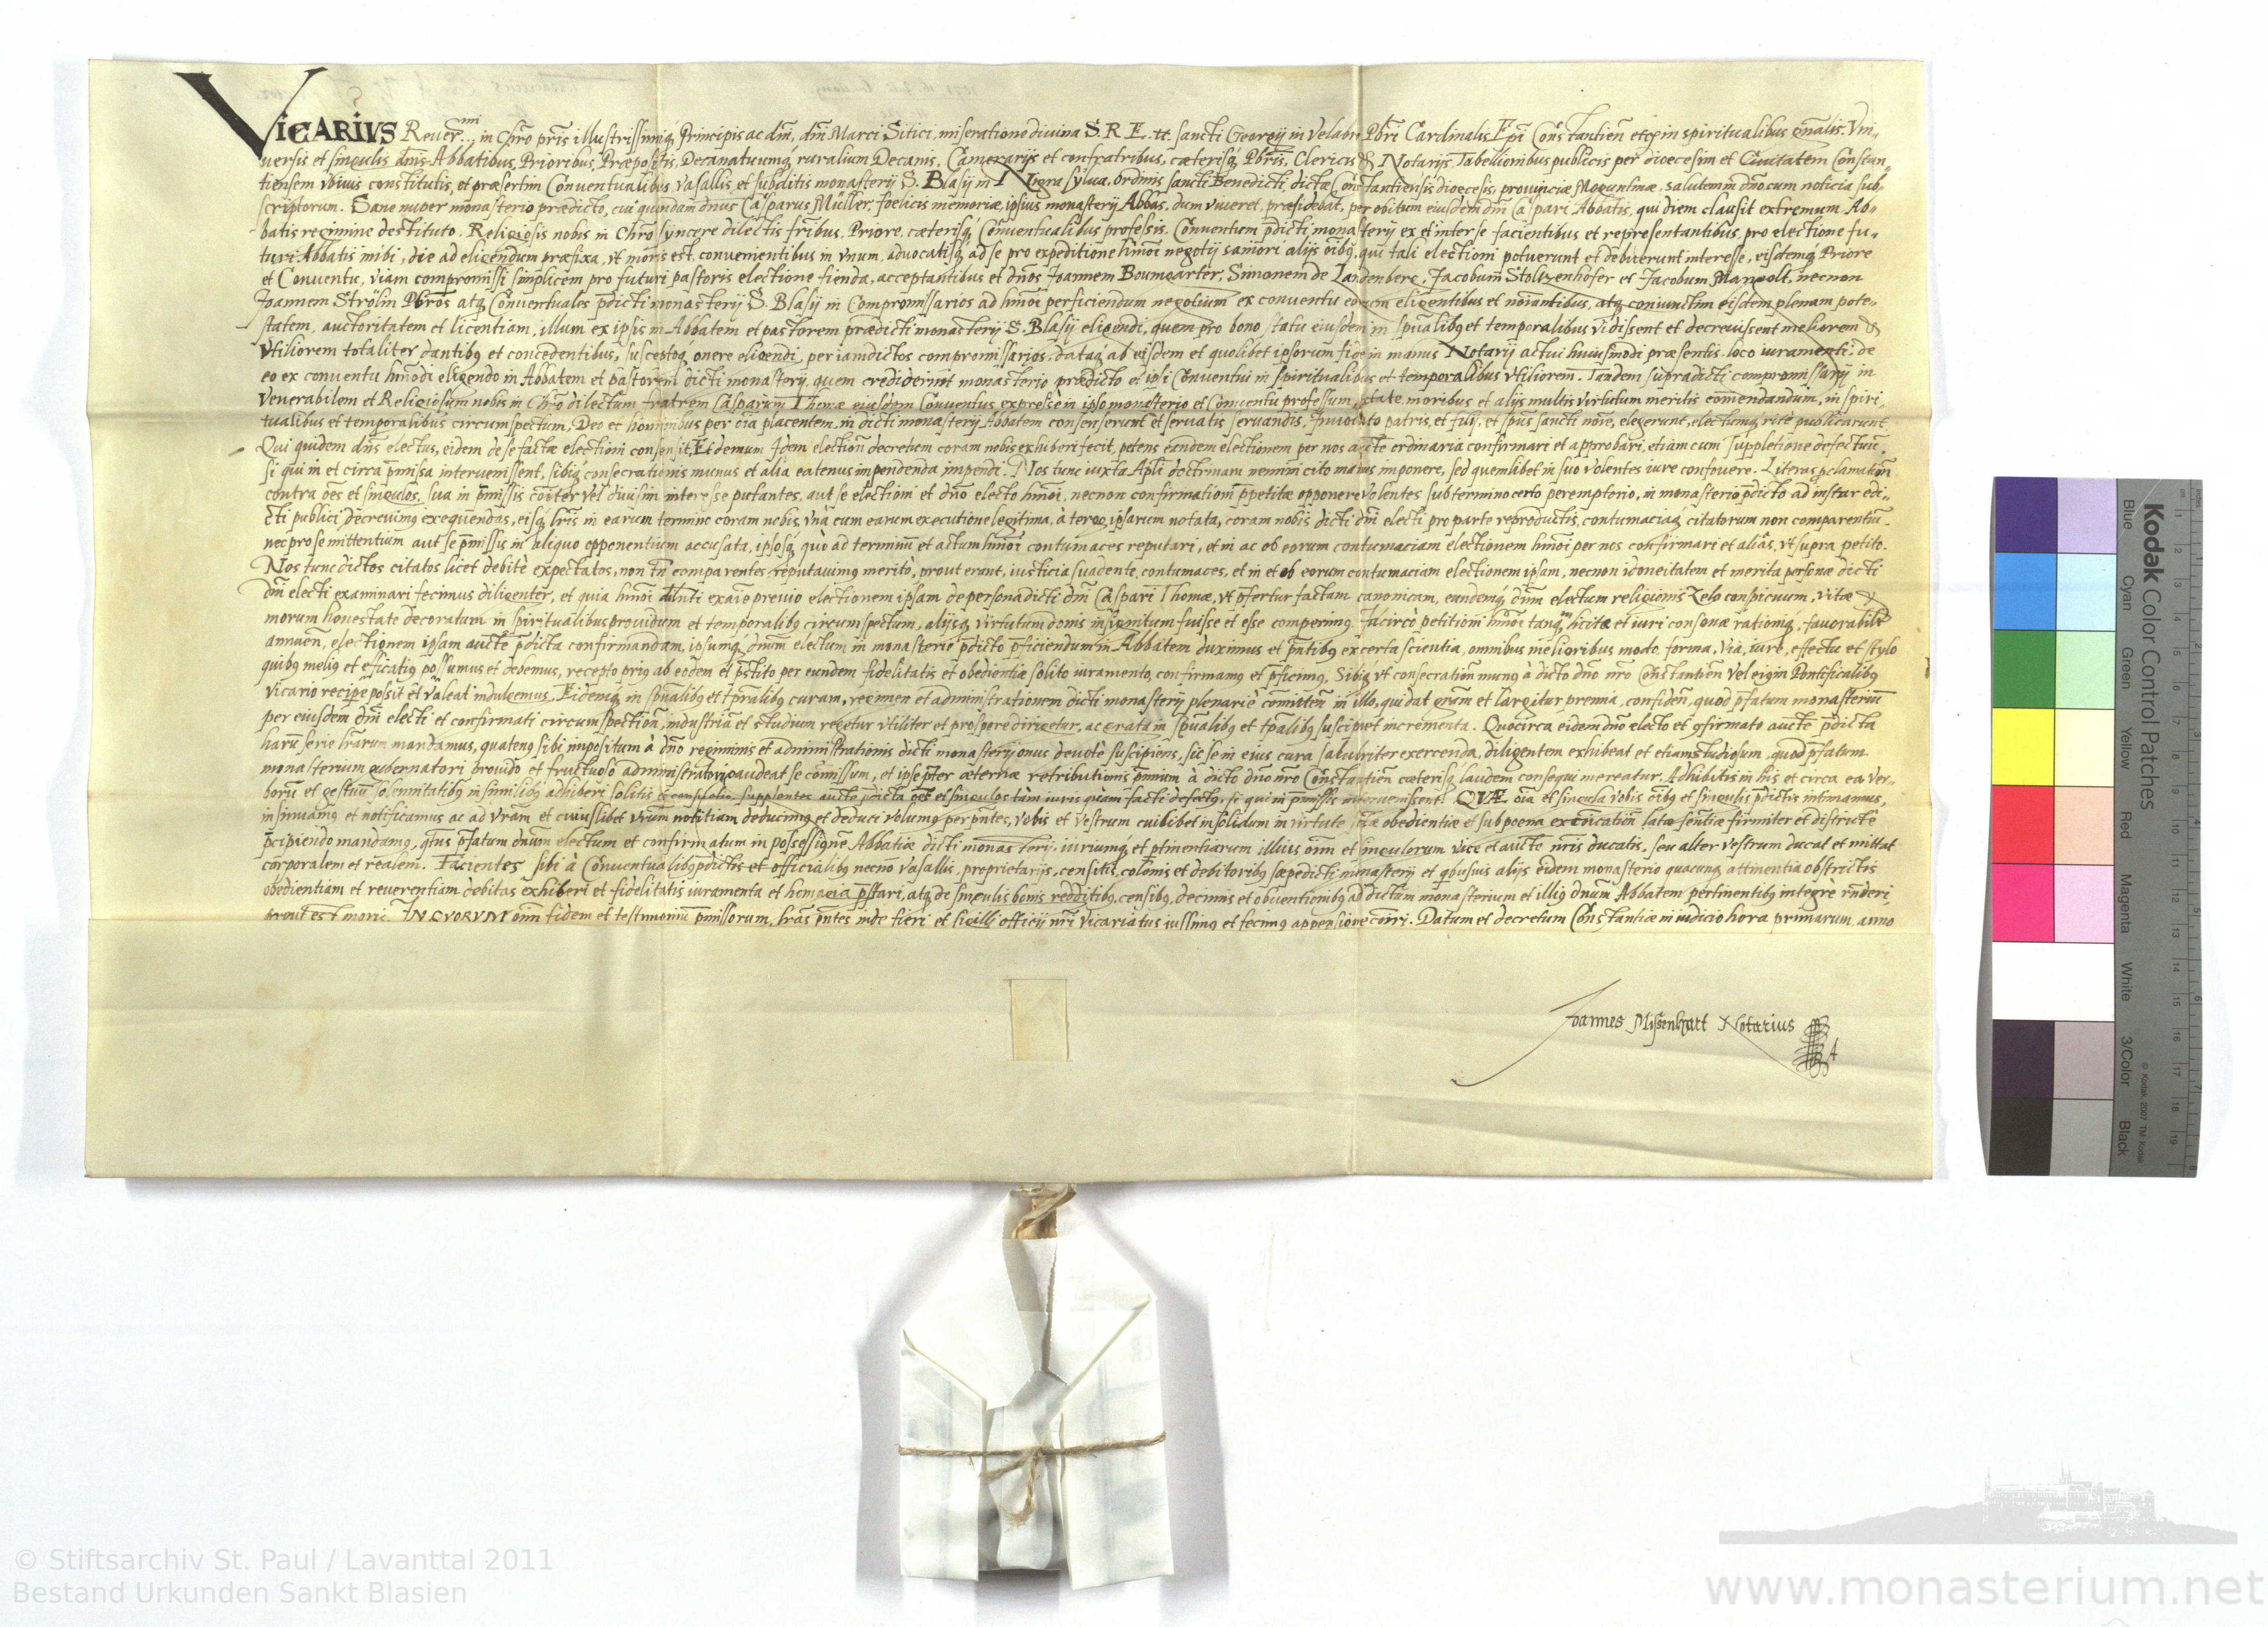 VICARIVS Reuer.mi in Chro pris illustrissimiq́ Principis ac dni, dni Marci Sitici, miseratione diuina S. R. E. tt. sancti Georgij in Velabri Pbri Cardinalis Epi Constantien etc in spiritualibus gnalis. Vni-
uersis et singulis dnis Abbatibus, Prioribus, Præpositis, Decanatuumq́ ruralium Decanis, Camerarijs et confratribus, cæterisq́ Pbris, Clericis & Notarijs, Tabellionibus publicis per diocesim et Ciuitatem Constan-
tiensem vbiuis constitutis, et præsertim Conuentualibus, vasallis et subditis monasterij S. Blasij in Nigra sylua, Ordinis sancti Benedicti, dictæ Constantiensis dioecesis, prouinciæ Moguntinæ, salutem in dno cum noticia sub-
scriptorum. Sane nuper monasterio prædicto, cui quondam dnus Casparus Müller, foelicis memoriæ, ipsius monasterij Abbas, dum viueret, præsidebat, per obitum eiusdem dni Caspari Abbatis, qui diem clausit extremum, Ab-
batis regimine destituto. Religiosis nobis in Chro syncere dilectis fribus, Priore, cæterisq́ Conuentualibus professis, Conuentum pdicti monasterij ex et inter se facientibus et representantibus, pro electione fu-
turi Abbatis inibi, die ad eligendum præfixa, vt moris est, conuenientibus in vnum, aduocatisq́ ad se pro expeditione hmoi negotij saniori alijs oibq, qui tali electioni potuerunt et debuerunt interesse, eisdemq́ Priore
et Conuentu, viam compromissi simplicem pro futuri pastoris electione fienda, acceptantibus et dnos Joannem Boumgarter, Simonem de Landenberg, Jacobum Stoltzenhofer et Jacobum Mangolt, necnon
Joannem Strölin Pbros atq́ Conuentuales pdicti monasterij S. Blasij in Compromissarios ad hmoi perficiendum negotium ex conuentu eorum eligentibus et noiantibus, atq́ coniunctim eisdem plenam pote-
statem, auctoritatem et licentiam, illum ex ipsis in Abbatem et pastorem prædicti monasterij S. Blasij eligendi, quem pro bono statu eiusdem in spualibq et temporalibus vidissent et decreuissent meliorem &
vtiliorem totaliter dantibq et concedentibus, susceptoq́ onere eligendi per iamdictos compromissarios, dataq́ ab eisdem et quolibet ipsorum fide in manus Notarij actui huiusmodi præsentis loco iuramenti, de
eo ex conuentu hmodi eligendo in Abbatem et pastorem dicti monasterij, quem crediderint monasterio prædicto et ipsi Conuentui in spiritualibus et temporalibus vtiliorem. Tandem supradicti compromissarij in
Venerabilem et Religiosum nobis in Chro dilectum fratrem Casparum Thomæ eiusdem Conuentus, expressè in ipso monasterio et Conuentu professum, ætate, moribus et alijs multis virtutum meritis comendandum, in spiri-
tualibus et temporalibus circumspectum, Deo et hominibus per oia placentem, in dicti monasterij Abbatem consenserunt et seruatis seruandis, Inuocato patris, et filij, et spus sancti noie, elegerunt, electumq́ ritè publicarunt.
Qui quidem dns electus, eidem de se factæ electioni consensit, Et demum Idem election decretum coram nobis exhiberi fecit, petens eandem electionem per nos aucte ordinaria confirmari et approbari, etiam cum suppletione defectuu,
si qui in et circa pmissa interuenissent, sibiq́ consecrationis munus et alia eatenus impendenda impendi. Nos tunc iuxta Apli doctrinam nemini cito manus imponere, sed quemlibet in suo volentes iure confouere. Literas pclamation
contra oes et singulos, sua in pmissis coiter vel diuisim interesse putantes, aut se electioni et dno electo hmoi, necnon confirmationi ppetitæ opponere volentes sub termino certo peremptorio, in monasterio pdicto ad instar edi-
cti publici decreuimq exequendas, eisq́ lris in earum termino coram nobis, vnà cum earum executione legitima, à tergo ipsarum notata, coram nobis dicti dni electi pro parte reproductis, contumaciaq́ citatorum non comparentiu
nec pro se mittentium aut se pmissis in aliquo opponentium accusata, ipsosq́ quò ad terminu et actum hmoi contumaces reputari, et in ac ob eorum contumaciam electionem hmoi per nos confirmari et aliàs, vt supra petito.
Nos tunc dictos citatos licet debitè expectatos, non tn comparentes reputauimq meritò, prout erant, iusticia suadente, contumaces, et in et ob eorum contumaciam electionem ipsam, necnon idoneitatem et merita personæ dicti
dni electi examinari fecimus diligenter, et quia hmoi exaie preuio electionem ipsam de persona dicti dni Caspari Thomæ, vt pfertur factam canonicam, eandemq́ dnm electum religionis zelo conspicuum, vitæ &
morum honestate decoratum in spiritualibus prouidum et temporalibq circumspectum, alijsq́ virtutum donis insignitum fuisse et esse comperimq. Idcircò petitioni hmoi tanq licitæ et iuri consonæ rationiq́, fauorabilr
annuen, electionem ipsam aucte pdicta confirmandam, ipsumq́ dnum electum in monasterio pdicto pficiendum in Abbatem duximus et pntibq ex certa scientia, omnibus melioribus modo, forma, via, iure, effectu et stylo
quibq meliq et efficatiq possumus et debemus, recepto priq ab eodem et pstito per eundem fidelitatis et obedientiæ solito iuramento, confirmamq et pficimq, Sibiq́ vt consecration munq à dicto dno nro Constantien vel eiq in Pontificalibq
vicario recipe possit et valeat indulgemus. Eidemq́ in spualibq et tpralibq curam, regimen et administrationem dicti monasterij plenariè comitten in illo, qui dat gram et largitur premia, confiden, quod pfatum monasteriu
per eiusdem dni electi et confirmati circumspection, industria et studium regetur vtiliter et prosperè dirigetur, ac grata in spualibq et tpalibq suscipiet incrementa. Quocirca eidem dno electo et gfirmato aucte pdicta
haru serie lrarum mandamus, quatenq sibi impositum à dno regiminis et administrationis dicti monasterij onus deuotè suscipiens, sic se in eius cura salubriter exercenda, diligentem exhibeat et etiam studiosum, quod pfatum
monasterium gubernatori prouido et fructuoso administratori gaudeat se comissum, et ipse pter æternæ retributionis pmium à dicto dno nro Constantien cæterisq́ laudem consequi mereatur. Adhibitis in his et circa ea ver-
boru et gestuu solennitatibq in similibq adhiberi solitis supplentes aucte pdicta oes et singulos tàm iuris quàm facti defectq, si qui in pmissis interuenissent. QVÆ oia et singula vobis oibq et singulis pdictis intimamus,
insinuamq et notificamus ac ad vram et cuiuslibet vrum notitiam deducimq et deduci volumq per pntes, vobis et vestrum cuilibet in solidum in virtute sctæ obedientiæ et sub poena excoication latæ sententiæ firmiter et districtè
pcipiendo mandamq, qtus pfatum dnum electum et confirmatum in possessione Abbatiæ dicti monasterij, iuriumq́ et ptinentiarum illius oim et singulorum vice et aucte nris ducatis, seu alter vestrum ducat et mittat
corporalem et realem. Facientes sibi à Conuentualibq pdictis et officialibq necno vasallis, proprietarijs, censitis, colonis et debitoribq sæpedicti monasterij et qbusuis alijs eidem monasterio quacunq attinentia obstrictis
obedientiam et reuerentiam debitas exhiberi et fidelitatis iuramenta et homagia pstari, atq́ de singulis bonis redditibq, censibq, decimis et obuentionibq ad dictum monasterium et illiq dnum Abbatem pertinentibq integrè rnderi,
prout est moris. IN QVORVM oim fidem et testimoniu pmissorum, lras pntes inde fieri et sigilli officij nri Vicariatus iussimq et fecimq appensione coiri. Datum et decretum Constantiæ in iudicio hora primarum, anno
Joannes Missenhart Notarius
Kodak Color Control Patches
Blue Cyan Green Yellow Red Magenta White 3/Color Black
© Kodak, 2007 TM: Kodak
© Stiftsarchiv St. Paul / Lavanttal 2011
Bestand Urkunden Sankt Blasien
www.monasterium.net